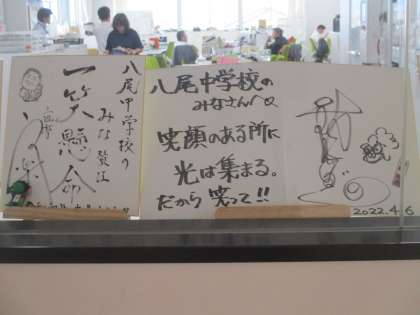 八尾中学校の
みな賛江
一笑懸命
八尾中学校の
みなさんへ
笑顔のある所に
光は集まる。
だから笑って!!
2022.4.6